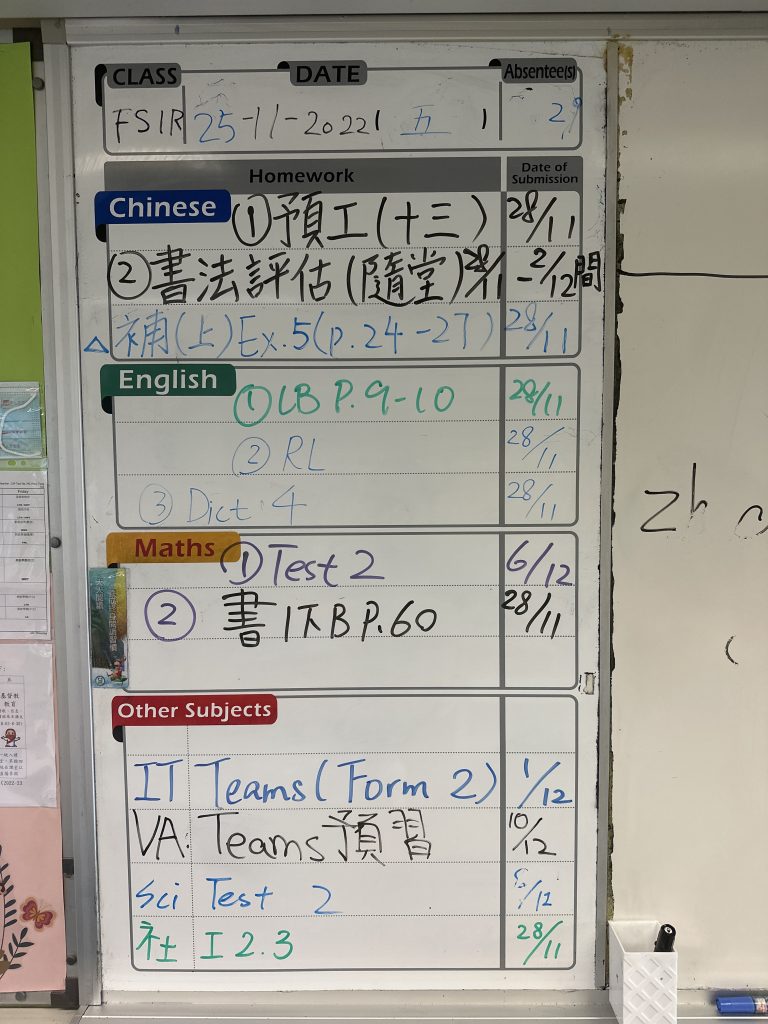 CLASS DATE Absentee(s)
25-11-2022 五 29
Homework Date of Submission
Chinese ①預工(十三) 28/11
②書法評估(隨堂) 28/11 - 2/12間
△補(上)Ex.5(p.24-27) 28/11
English ①LB P.9-10 28/11
② RL 28/11
③ Dict 4 28/11
Maths ①Test 2 6/12
② 書1下B P.60 28/11
Other Subjects
IT Teams(Form 2) 1/12
VA: Teams預習 10/12
Sci Test 2 /12
社 I 2.3 28/11
Friday
zh